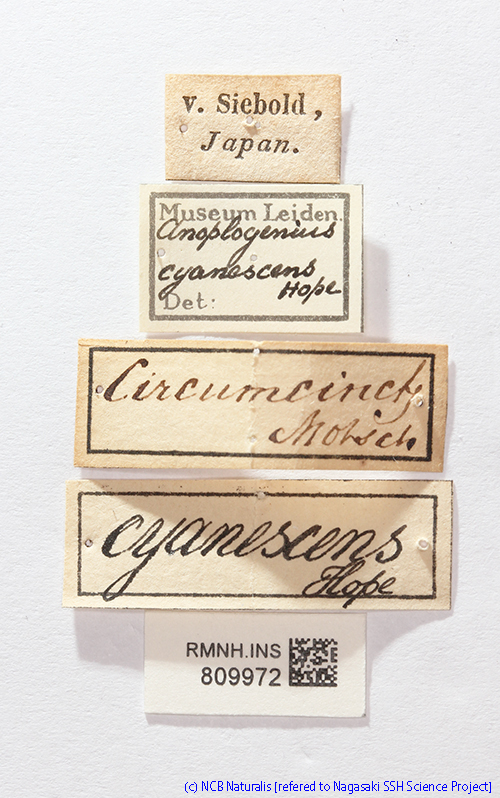 v. Siebold,
Japan.
Museum Leiden.
Anoplogenius
cyanescens
Hope
Det:
Motsch.
cyanescens
Hope
RMNH.INS
809972
(c) NCB Naturalis [refered to Nagasaki SSH Science Project]